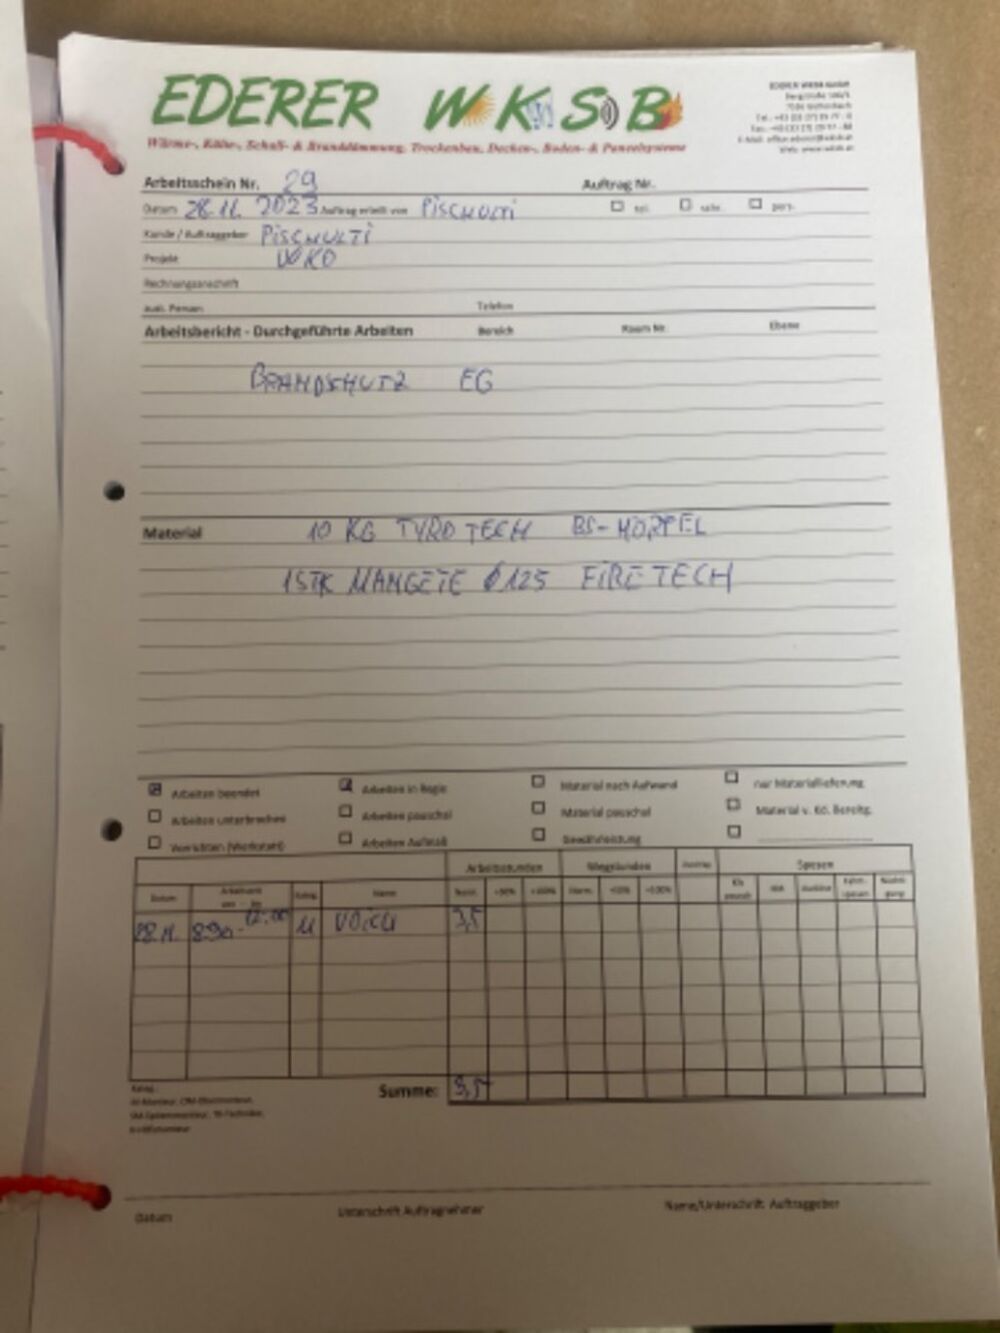 EDERER WKSB
Wärme-, Kälte-, Schall- & Branddämmung, Trockenbau, Decken-, Boden- & Paneelsysteme
EDERER WKSB GmbH
Arbeitsschein Nr. 29
Auftrag Nr.
Datum 28.11. 2023 Auftrag erteilt von PISCHULTI
tel.
pers.
Kunde / Auftraggeber PISCHULTI
Projekt WOKO
Rechnungsanschrift
zust. Person
Telefon
Arbeitsbericht - Durchgeführte Arbeiten Bereich Raum Nr. Ebene
BRANDSCHUTZ EG
Material 10 KG TYRO TECH BS-MÖRTEL
1STK MANGETE Ø125 FIRE TECH
Arbeiten beendet Arbeiten in Regie Material nach Aufwand nur Materiallieferung
Arbeiten unterbrochen Arbeiten pauschal Material pauschal Material v. KD. Bereitg.
Vorrichten (Werkstatt) Arbeiten Aufmaß Gewährleistung
Arbeitsstunden Wegstunden Spesen
Datum Name Norm. +50% +100% Norm. +50% +100%
28.11. 830- 12:00 M 3,5
Summe: 3,5
Datum Unterschrift Auftragnehmer Name/Unterschrift Auftraggeber